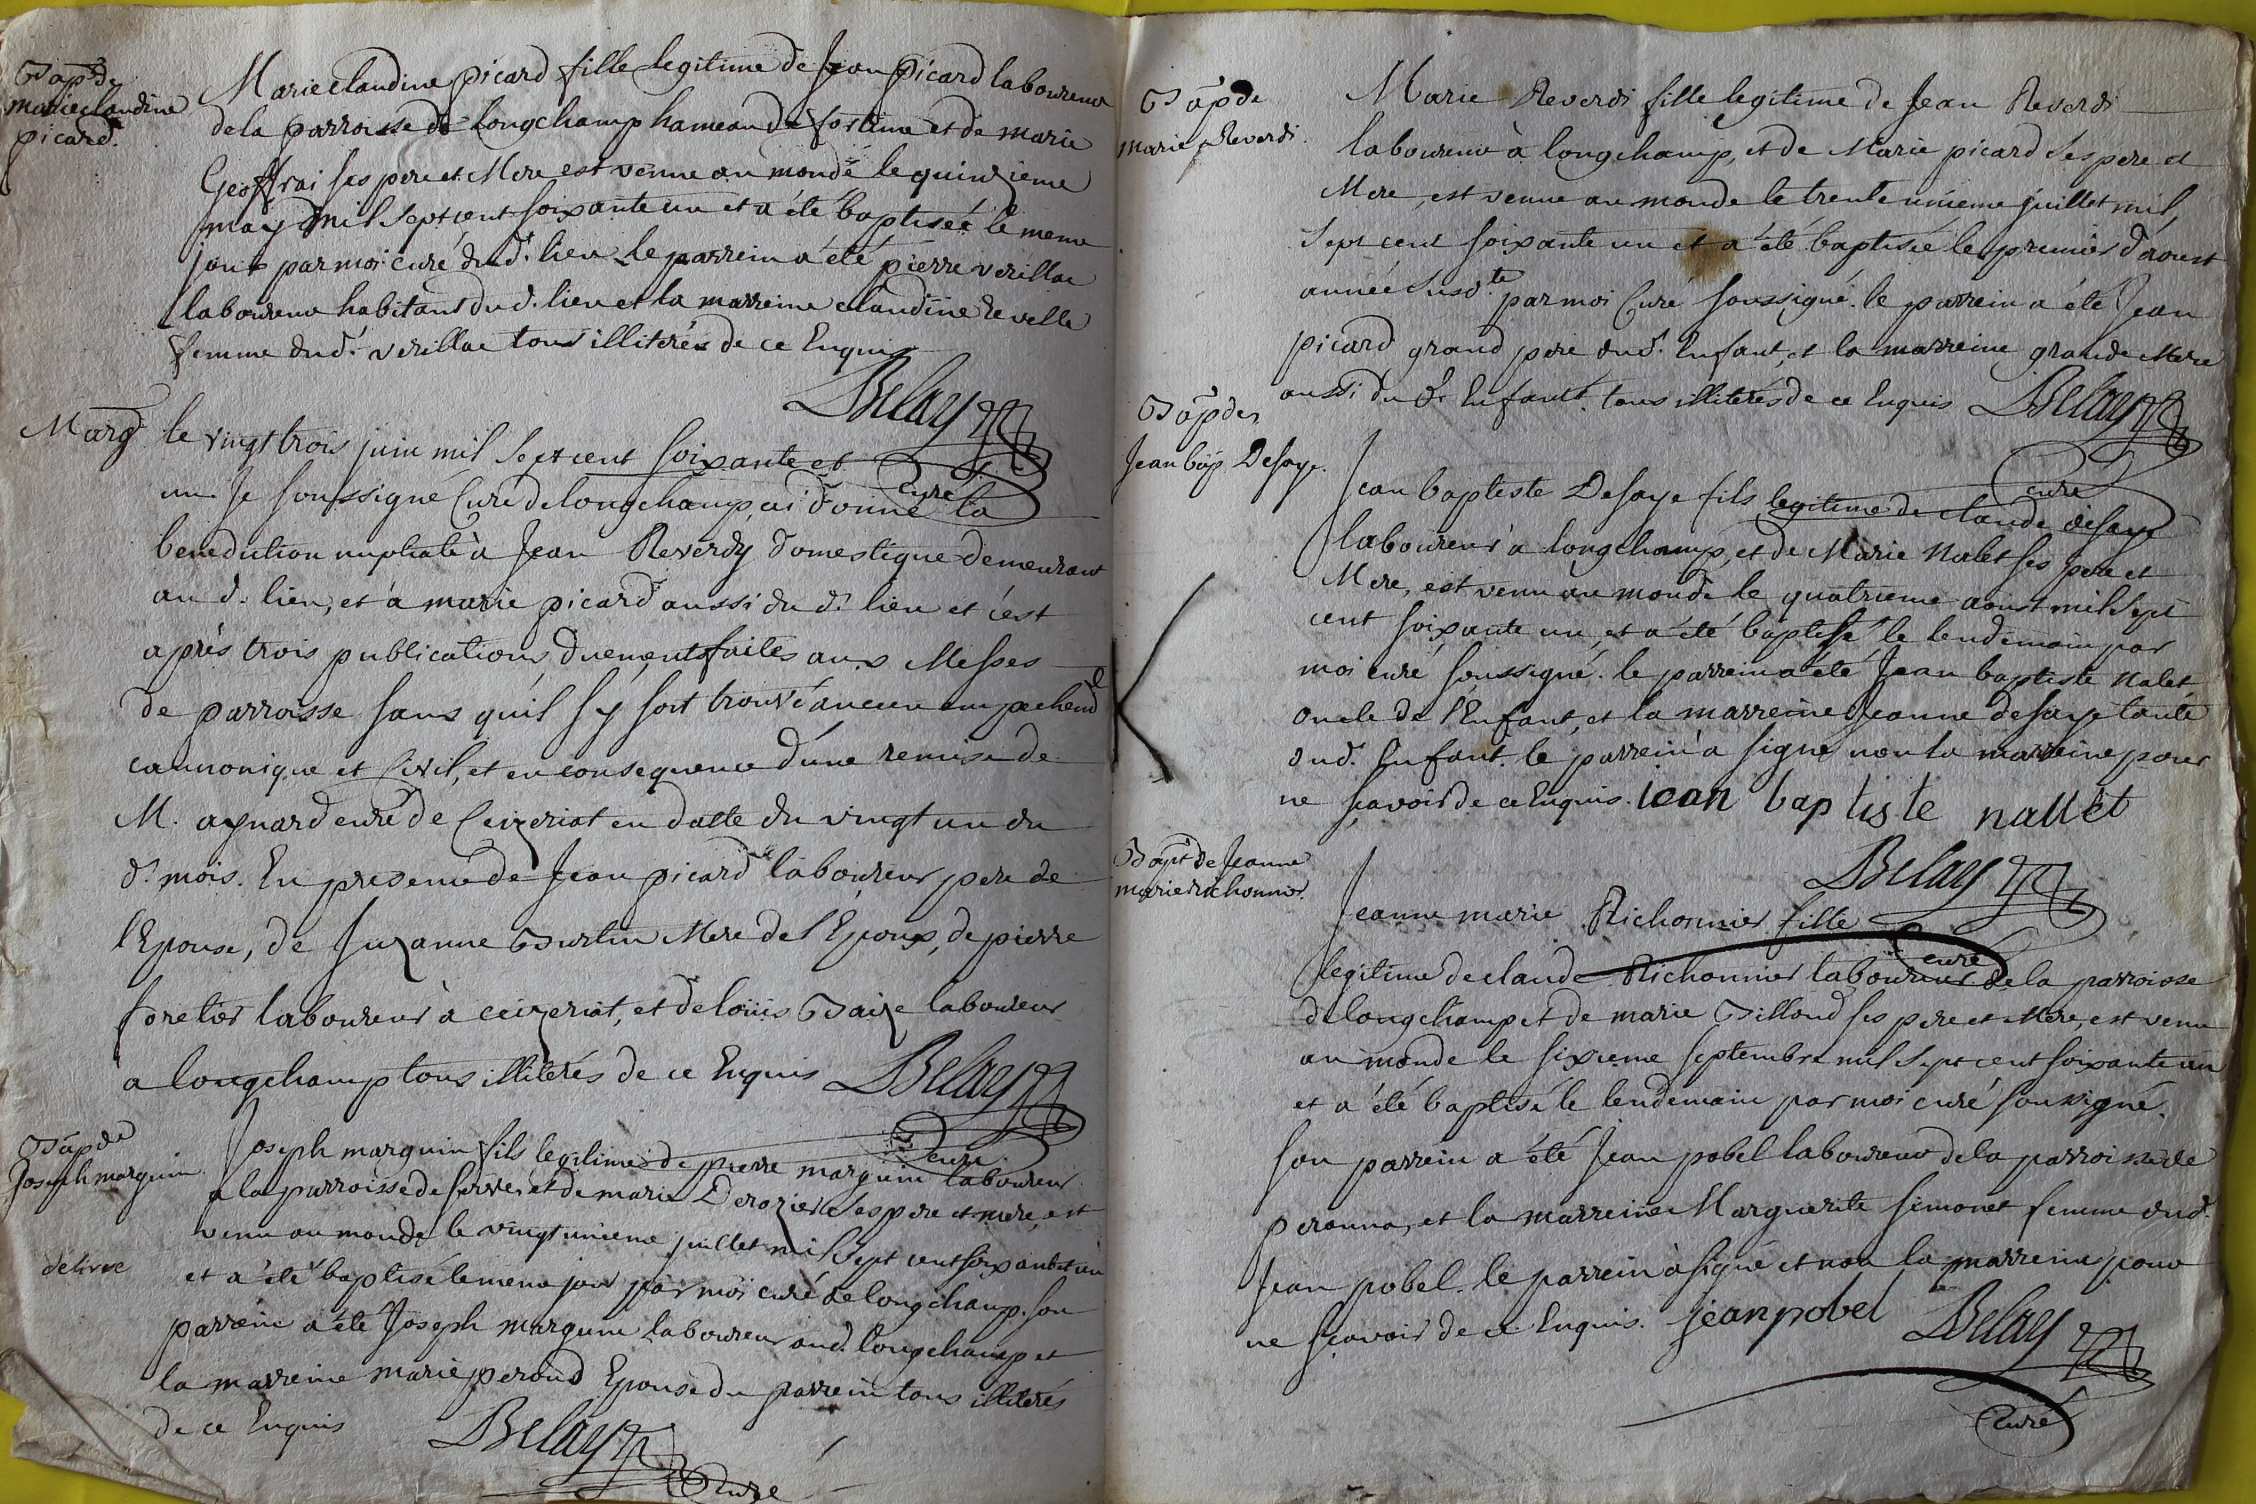 Bap. de
marie claudine
picard.
Marie claudine picard fille legitime de Jean picard laboureur
de la parroisse de longchamp hameau de et de marie
Geoffrai ses pere et Mere est venue au monde le quinzieme
may mil sept cent soixante un et a été baptisée le meme
jour par moi curé dud. lieu le parrein a été pierre verillac
laboureur habitant dud. lieu et la marreine claudine revelle
femme dud. verillac tous illiterés de ce Enquis
Belay
curé
Marg.
le vingt trois juin mil sept cent soixante et
un. Je soussigné Curé de longchamp, ai donné la
benediction nuptiale à Jean Reverdy domestique demeurant
au d. lieu, et à marie picard aussi du d. lieu et c'est
après trois publications duement faites aux Messes
de parroisse sans qu'il s'y soit trouvé aucun empechemd
cannonique et Civil, et en consequence d'une remise de
M. aynard curé de Ceizeriat en datte du vingt un du
d. mois. En presence de Jean picard laboureur pere de
l'Epouse, de Suzanne Burtin Mere de l'Epoux, de pierre
foretier laboureur à ceizeriat, et de loüis Baize laboureur
a longchamp tous illiterés de ce Enquis
Belay
curé
Bap de
Joseph marguin
délivré
Joseph marguin fils legitime de pierre marguin laboureur
a la parroisse de servas et de marie Derozier ses pere et mere, est
venu au monde le vingt unieme juillet mil sept cent soixante et un
et a été baptisé le meme jour par moi curé de longchamp. son
parrein a été Joseph marguin laboureur aud. longchamp et
la marreine marie perond Epouse du parrein tous illiterés
de ce Enquis
Belay
Curé
Bap de
marie Reverdi.
Marie Reverdi fille legitime de Jean Reverdi
laboureur à longchamp, et de Marie picard ses pere et
Mere, est venue au monde le trente unieme juillet mil
sept cent soixante un et a été baptisée le premier d'aoust
année susd.te par moi Curé soussigné. le parrein a été Jean
picard grand pere dud. Enfant, et la marreine grande Mere
aussi du d. Enfant. tous illiterés de ce Enquis
Belay
curé
Bap de
Jean bap. Desaye.
Jean baptiste Desaye fils legitime de claude desaye
laboureur à longchamp, et de Marie Nalet ses pere et
Mere, est venu au monde le quatrieme aoust mil sept
cent soixante un, et a été baptisé le lendemain par
moi curé soussigné. le parrein a été Jean baptiste Nalet
oncle de l'Enfant, et la marreine Jeanne desaye tante
dud. Enfant. le parrein a signé non la marreine pour
ne sçavoir de ce Enquis. iean baptiste nallet
Belay
curé
Bapt de Jeanne
marie richonnier.
Jeanne marie Richonnier fille
legitime de claude Richonnier laboureur de la parroisse
de longchamp et de marie Billoud ses pere et Mere, est venu
au monde le sixieme septembre mil sept cent soixante un
et a été baptisé le lendemain par moi curé soussigné.
son parrein a été Jean pobel laboureur de la parroisse de
peronna, et la marreine Marguerite simonet femme dud.
Jean pobel. le parrein à signé et non la marreine pour
ne sçavoir de ce Enquis. jean pobel
Belay
Curé